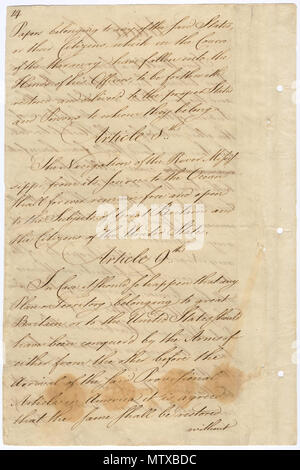 14
Papers belonging to any of the said States,
or their Citizens, which in the Course
of the War may have fallen into the
Hands of his Officers, to be forthwith
restored and deliver'd to the proper States
and Persons to whom they belong.
Article 8th
The Navigation of the River Missis
sippi, from its source to the Ocean
shall for ever remain free and open
to the Subjects of Great Britain and
the Citizens of the United States.
Article 9th
In Case it should so happen that any
Place or Territory belonging to great
Britain or to the United States should
have been conquer'd by the Arms of
either from the other before the
Arrival of the said Provisional
Articles in America, it is agreed
that the same shall be restored
without
alamy
alamy
Image ID: MTXBDC
www.alamy.com